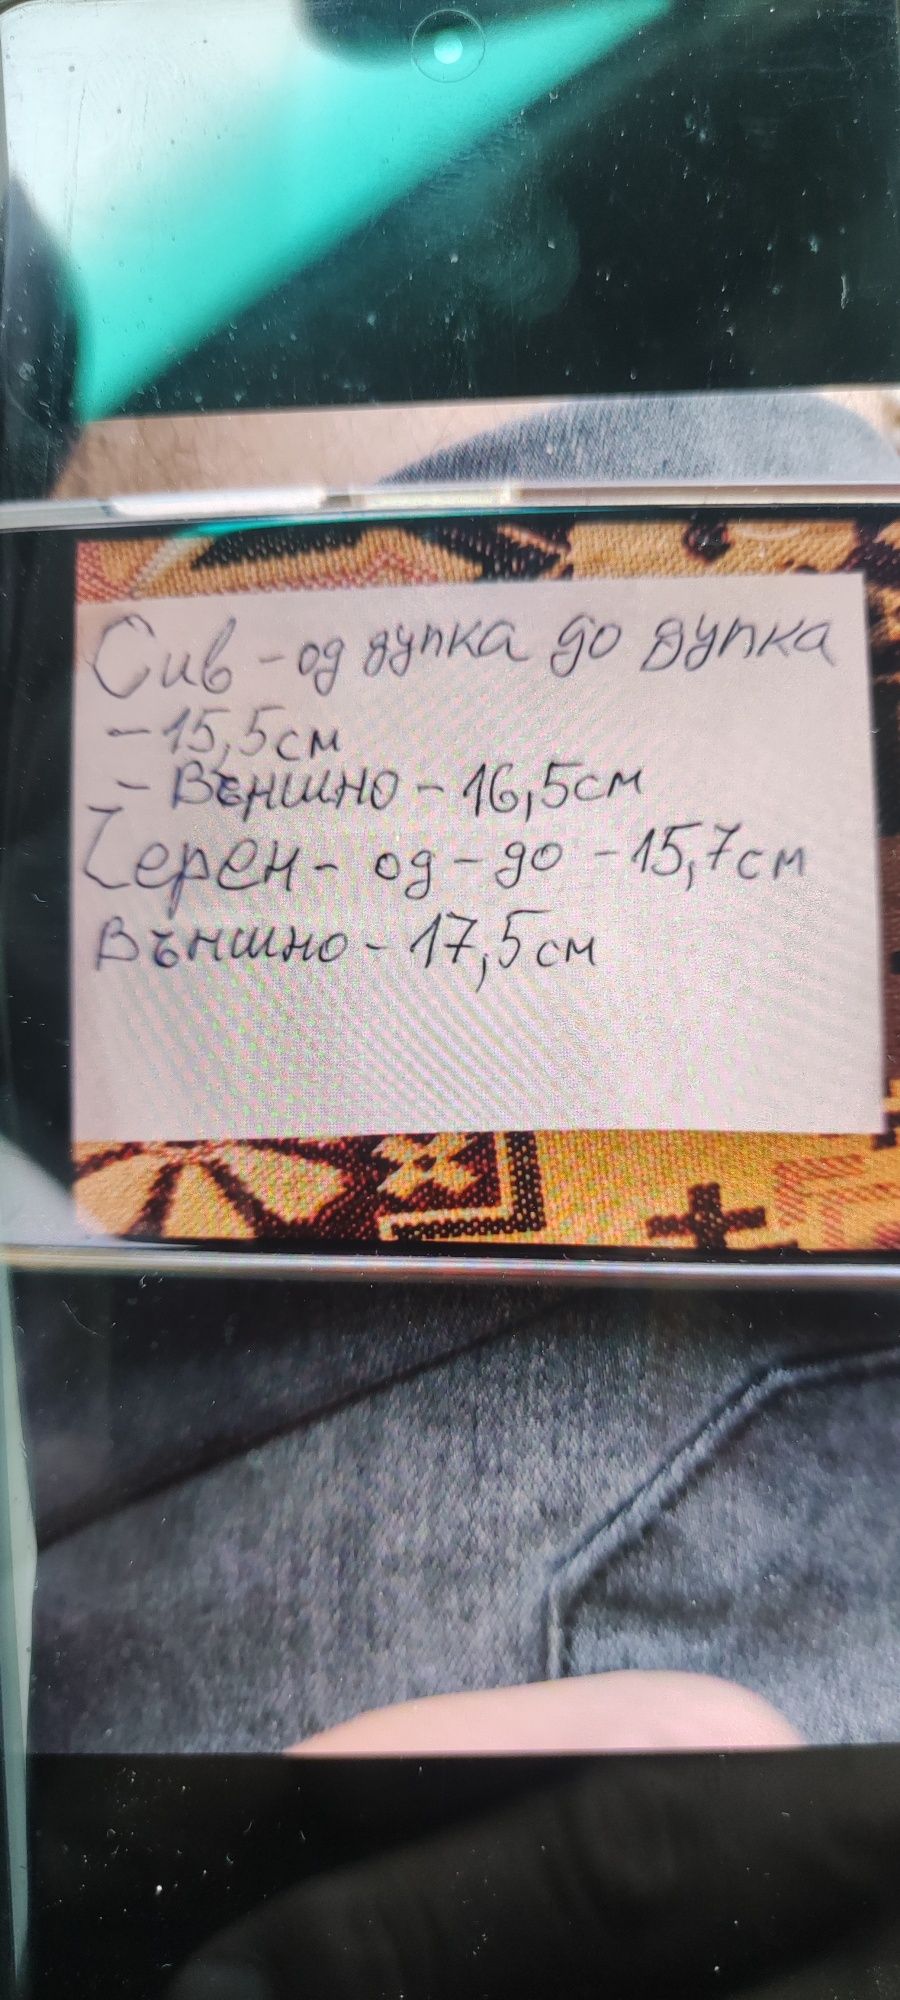 Сив - од дупка до дупка
- 15,5см
- Външно - 16,5см
Черен - од - до - 15,7см
Външно - 17,5см